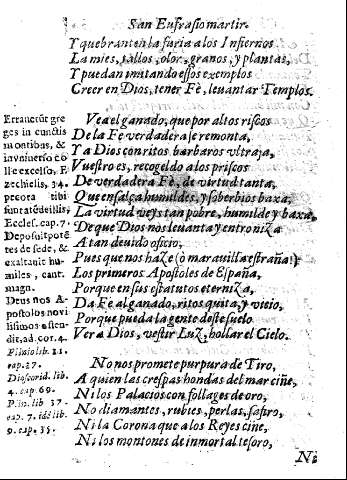 San Eufrasio martir.
Y quebranten la furia a los Infiernos
La mies, tallos, olor, granos, y plantas,
Y puedan imitando essos exemplos
Creer en Dios, tener Fè, leuantar Templos.
Vea el ganado, que por altos riscos
De la Fe verdadera se remonta,
Y a Dios con ritos barbaros vltraja,
Vuestro es, recogeldo a los priscos
De verdadera Fè, de virtud tanta,
Que ensalça humildes, y soberbios baxa,
La virtud veys tan pobre, humilde y baxa,
De que Dios nos leuanta y entroniza
A tan deuido oficio,
Pues que nos haze (ò marauilla estraña!)
Los primeros Apostoles de España,
Porque en sus estatutos eterniza,
Da Fe al ganado, ritos quita, y vicio,
Porque pueda la gente deste suelo
Ver a Dios, vestir Luz, hollar el Cielo.
No nos promete purpura de Tiro,
A quien las crespas hondas del mar ciñe,
Ni los Palacios con follages de oro,
No diamantes, rubies, perlas, safiro,
Ni la Corona que a los Reyes ciñe,
Ni los montones de inmortal tesoro,
Ni
Errauerũt gre
ges in cunctis
montibus, &
in vniuerso co
lle excelso, E
zechielis, 34.
pecora tibi
Eccles. cap. 7.
Deposuit potẽ
tes de sede, &
exaltauit hu-
miles, cant.
magn.
Deus nos A-
postolos novi
ssimos osten-
dit, ad cor. 4.
Plinio lib. 21.
cap. 27.
Dioscorid. lib.
4. cap. 69.
Plin. lib 37.
cap. 7. idẽ lib.
9. cap. 35.